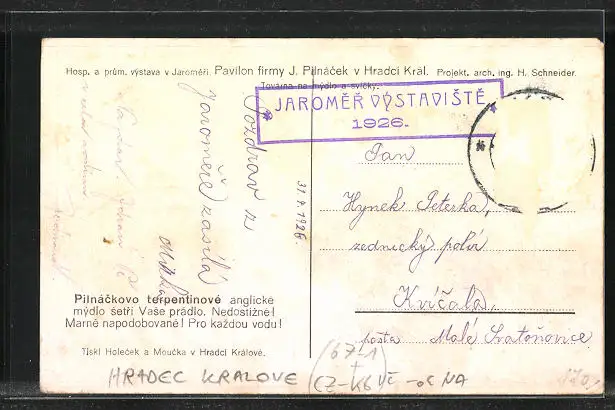 Hosp. a prům. výstava v Jaroměři. Pavilon firmy J. Pilnáček v Hradci Král. Projekt. arch. ing. H. Schneider.
Továrna na mýdlo a svíčky.
JAROMĚŘ VÝSTAVIŠTĚ
1926.
Pozdrav z
Jaroměře zasílá
31.7.1926.
Pan
Hynek Peterka,
zednický polír
Kvíčala,
pošta Malé Svatoňovice
Pilnáčkovo terpentinové anglické
mýdlo šetří Vaše prádlo. Nedostižné!
Marně napodobované! Pro každou vodu!
Tiskl Holeček a Moučka v Hradci Králové.
HRADEC KRALOVE
(67-1)
CZ-K6